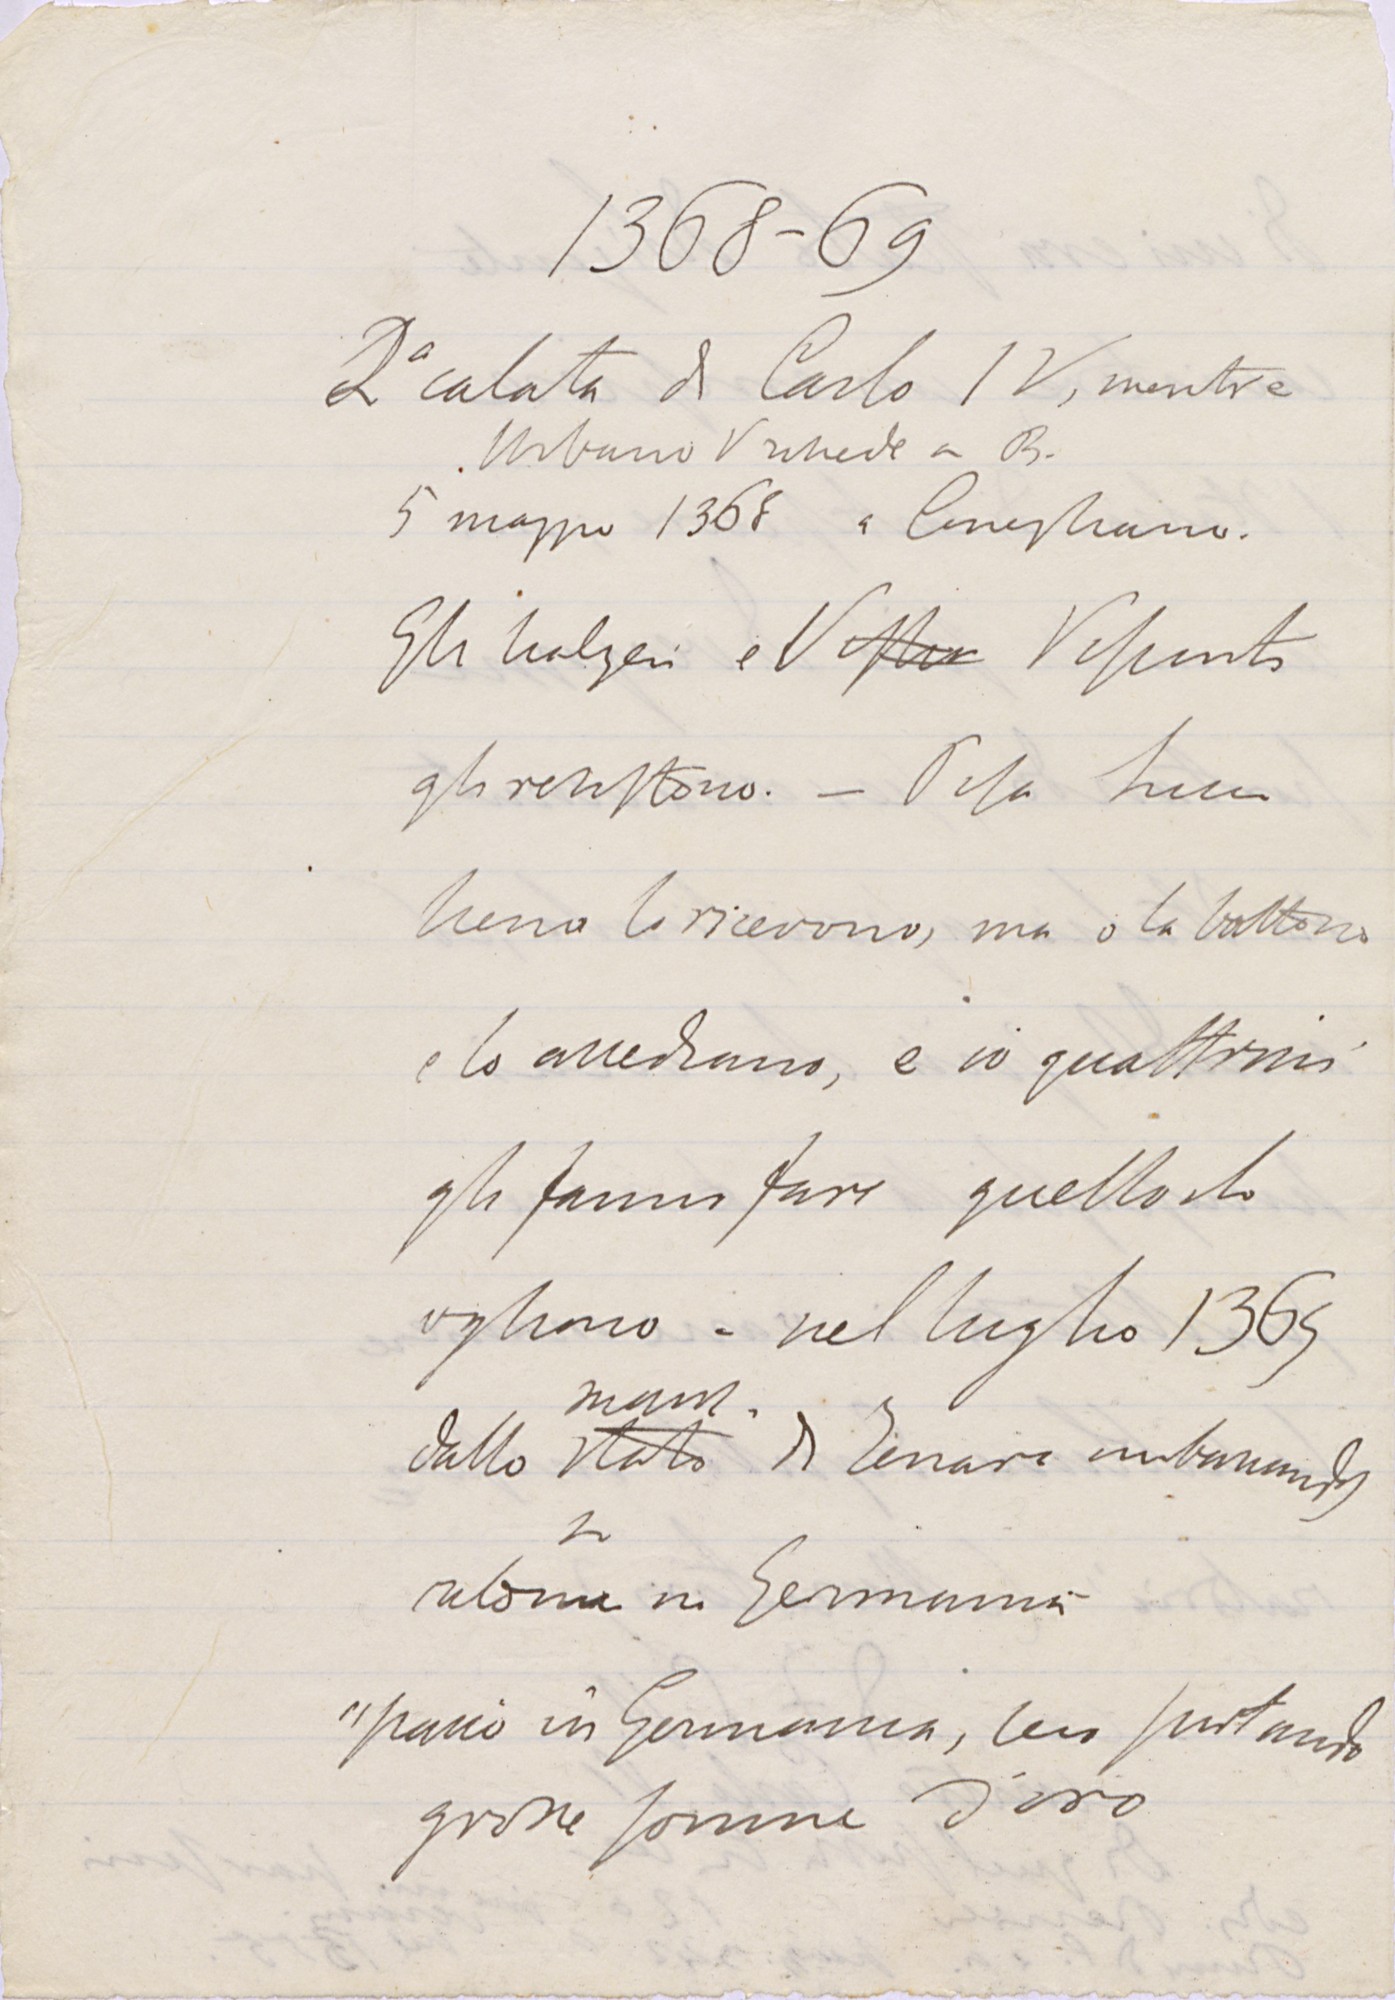 1368-69
2ª calata di Carlo IV, mentre
Urbano V risiede a R.
5 maggio 1368 a Conegliano.
Gli Scaligeri e Visconti
gli resistono. — Pisa Lucca
Siena lo ricevono, ma o lo battono
o lo assediano, e co' quattrini
gli fanno fare quello che
vogliono - nel luglio 1369
dallo di imbarcandosi
ritorna in Germania
"passò in Germania, seco portando
grosse somme d'oro